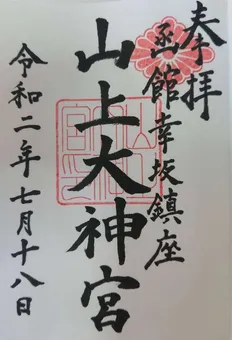 奉拝
函館幸坂鎮座
山上大神宮
令和二年七月十八日